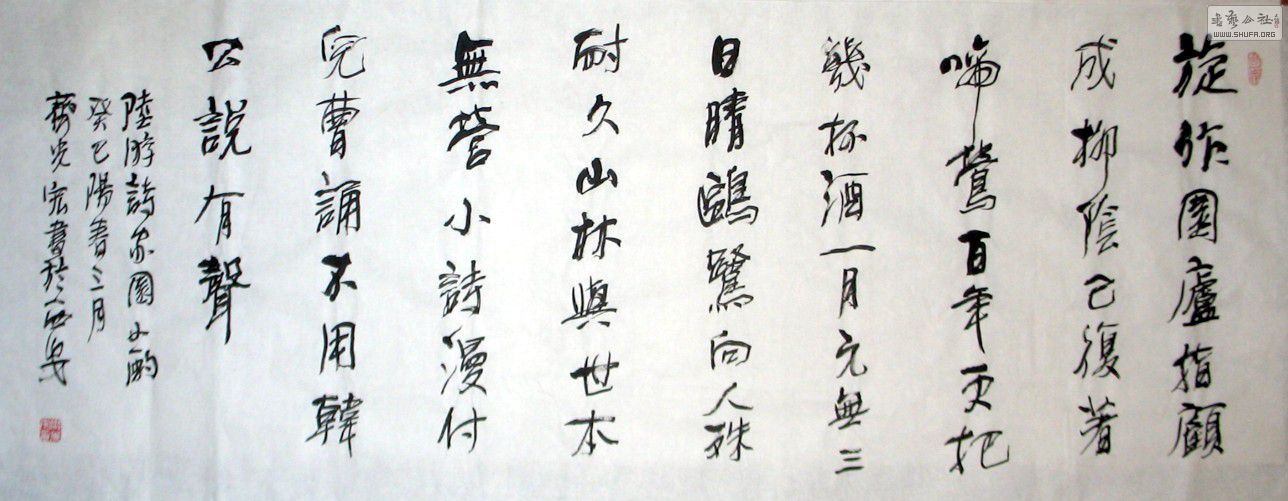 旋作園廬指顧
成柳陰已復著
啼鶯百年更把
幾杯酒一月元無三
日晴鷗鷺向人殊
耐久山林與世本
無營小詩漫付
兒曹誦不用韓
公說有聲
陸游詩家園小酌
癸巳陽春三月
齊光宏書於西安
書藝公社
WWW.SHUFA.ORG